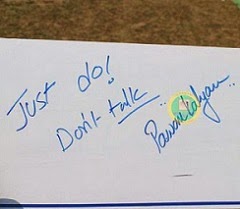 Just do!
Don't talk
Pawan Kalyan